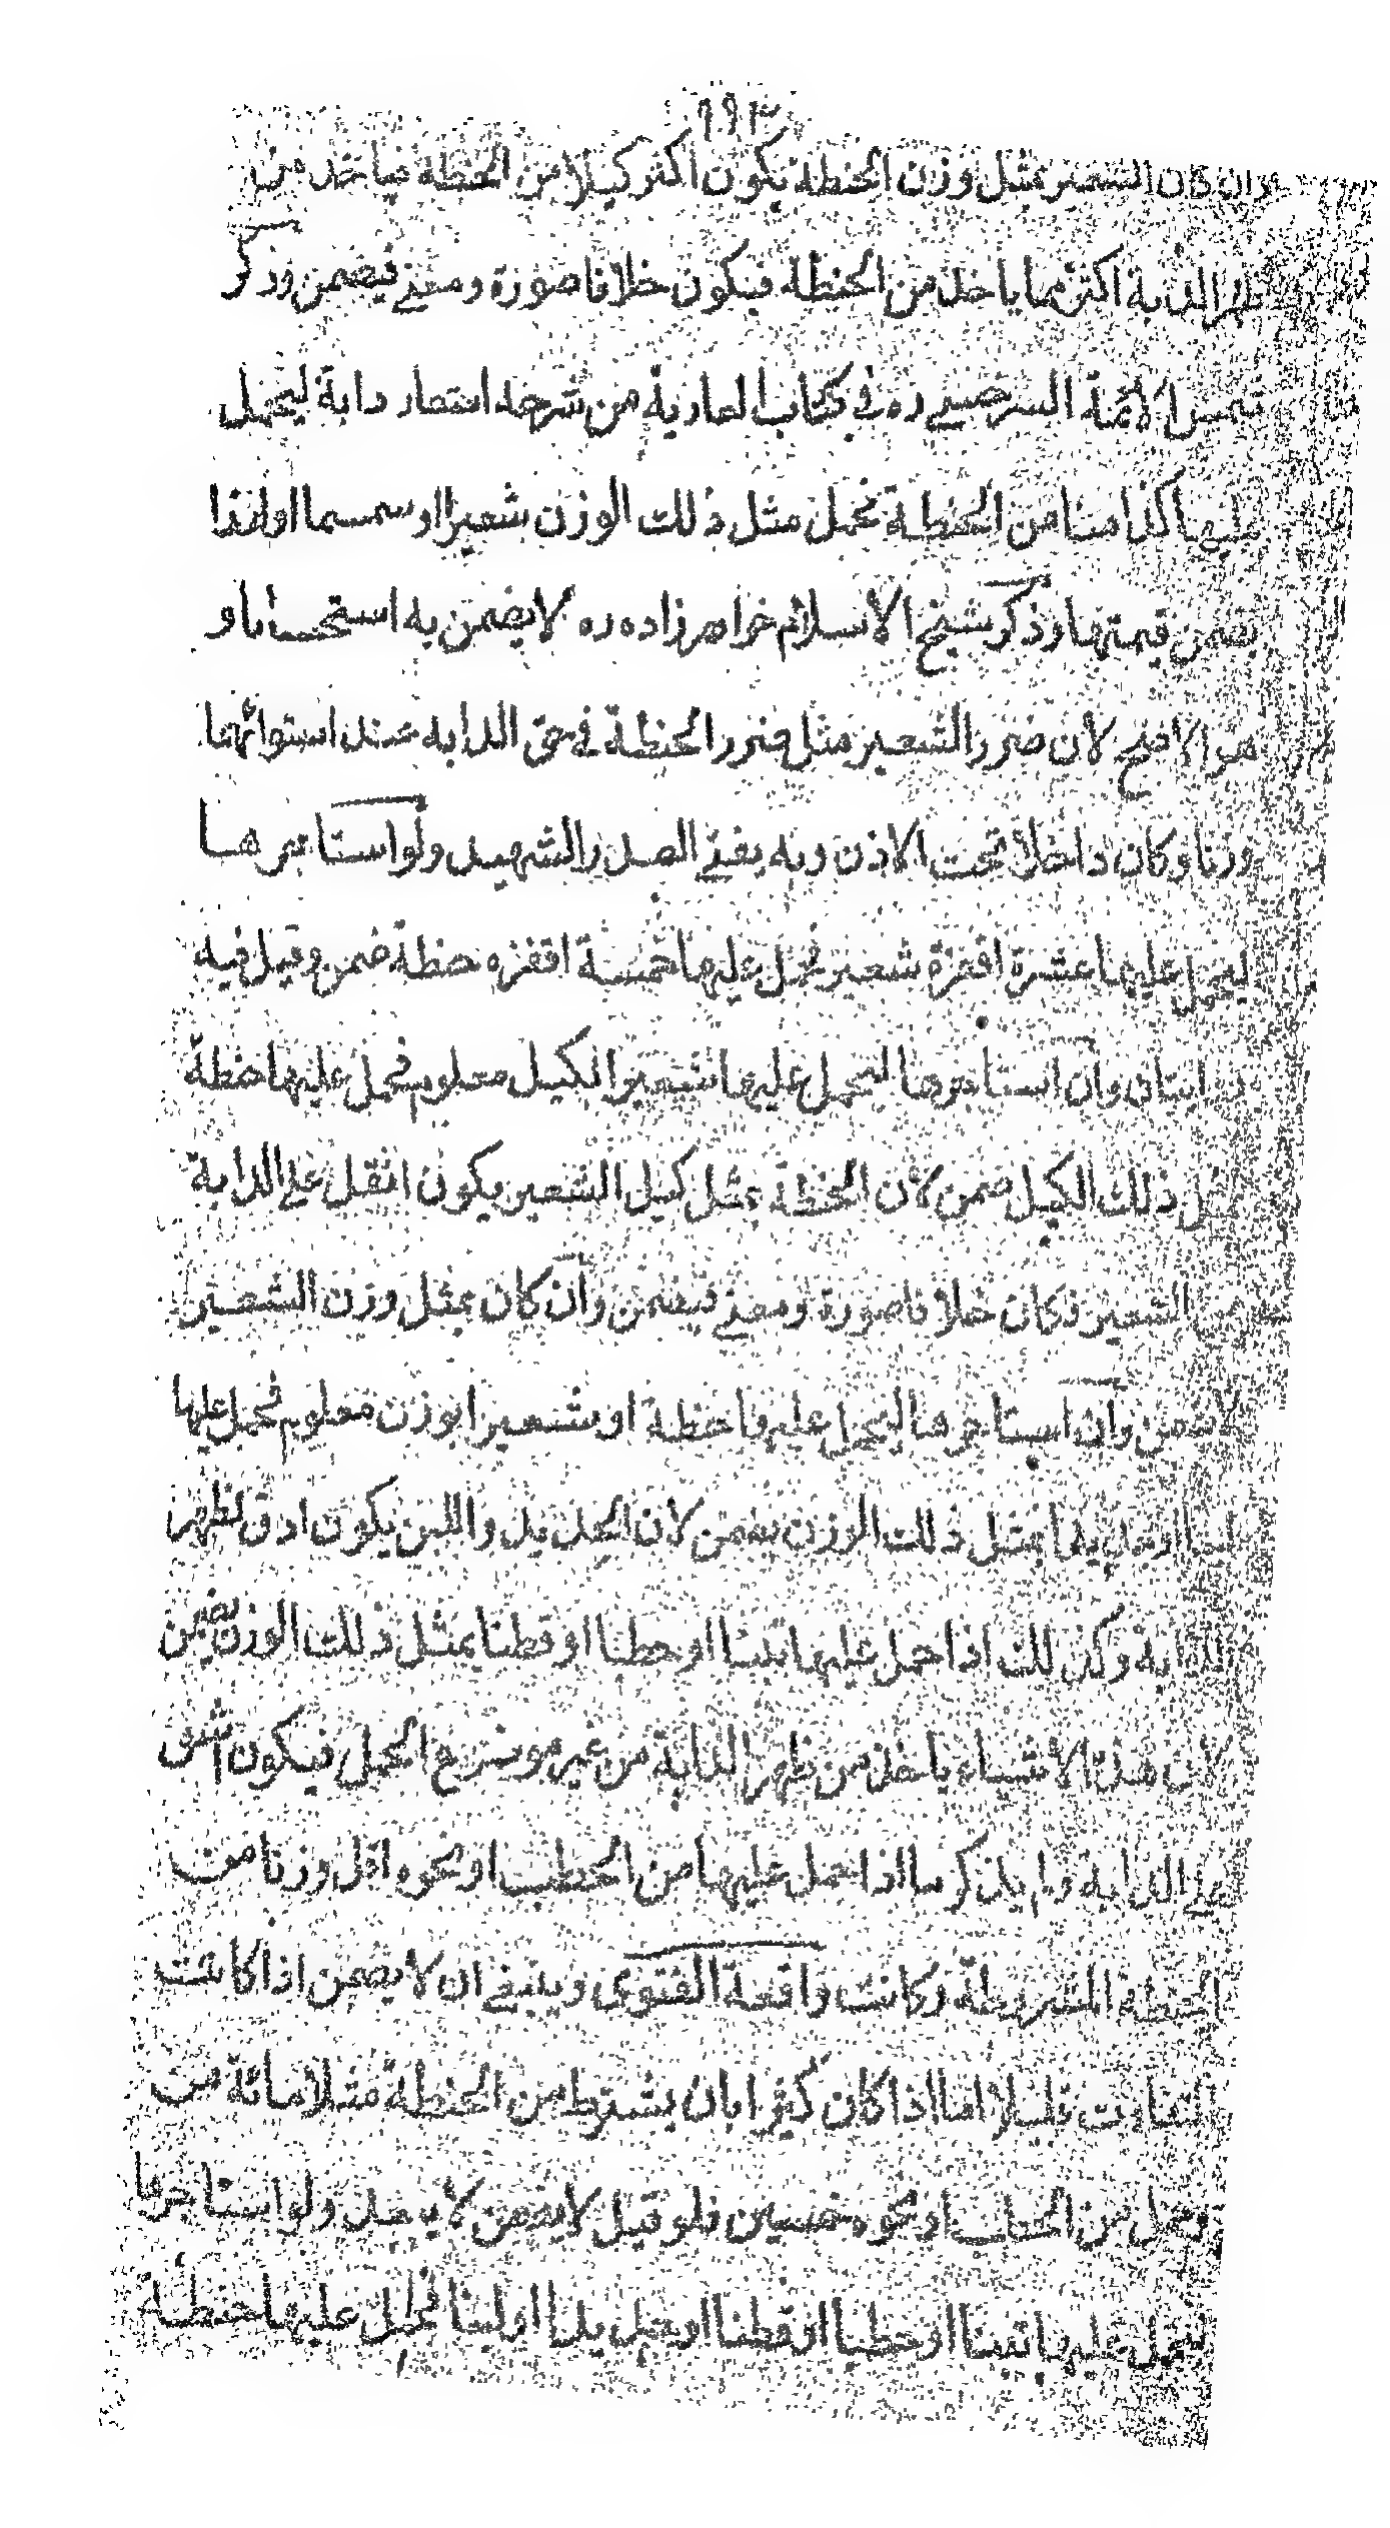 ١٩٣
وان كان الشعير مثل وزن الحنطة يكون اكثر كيلا من الحنطة فياخذ من
ظهر الدابة اكثر مما ياخذ من الحنطة فيكون خلافا صورة ومعنى فيضمن وذكر
شمس الائمة السرخسي ره في كتاب العارية من شرحه استعار دابة ليحمل
عليها كذا منا من الحنطة فحمل مثل ذلك الوزن شعيرا او سمسما او ارزا
يضمن قيمتها وذكر شيخ الاسلام خواهرزاده ره لا يضمن به استحسانا و
هو الاصح لان ضرر الشعير مثل ضرر الحنطة في حق الدابة عند استوائهما
وزنا وكان داخلا تحت الاذن وبه يفتي الصدر الشهيد ولو استاجرها
ليحمل عليها عشرة اقفزة شعير فحمل عليها خمسة اقفزه حنطة ضمن وقيل فيه
وان استاجرها ليحمل عليها شعيرا بكيل معلوم فحمل عليها حنطة
مثل ذلك الكيل ضمن لان الحنطة بمثل كيل الشعير يكون اثقل على الدابة
من الشعير فكان خلافا صورة ومعنى فيضمن وان كان بمثل وزن الشعير
لا يضمن وان استاجرها ليحمل عليها حنطة او شعيرا بوزن معلوم فحمل عليها
لبنا او حديدا بمثل ذلك الوزن يضمن لان الحديد واللبن يكون ادق لظهر
الدابة وكذلك اذا حمل عليها تبنا او حطبا او قطنا بمثل ذلك الوزن يضمن
لان هذه الاشياء ياخذ من ظهر الدابة من غير موضع الحمل فيكون اشق
على الدابة ولم يذكر ما اذا حمل عليها من الحطب او نحوه اقل وزنا من
الحنطة المشروطة وكانت واقعة الفتوى وينبغي ان لا يضمن اذا كانت
التفاوت قليلا اما اذا كان كثيرا بان يشترط من الحنطة مثلا مائة من
فحمل من الحطب او نحوه خمسين فلو قيل لا يضمن لا يبعد ولو استاجرها
ليحمل عليها تبنا او حطبا او قطنا او حمل او لبنا فحمل عليها حنطة